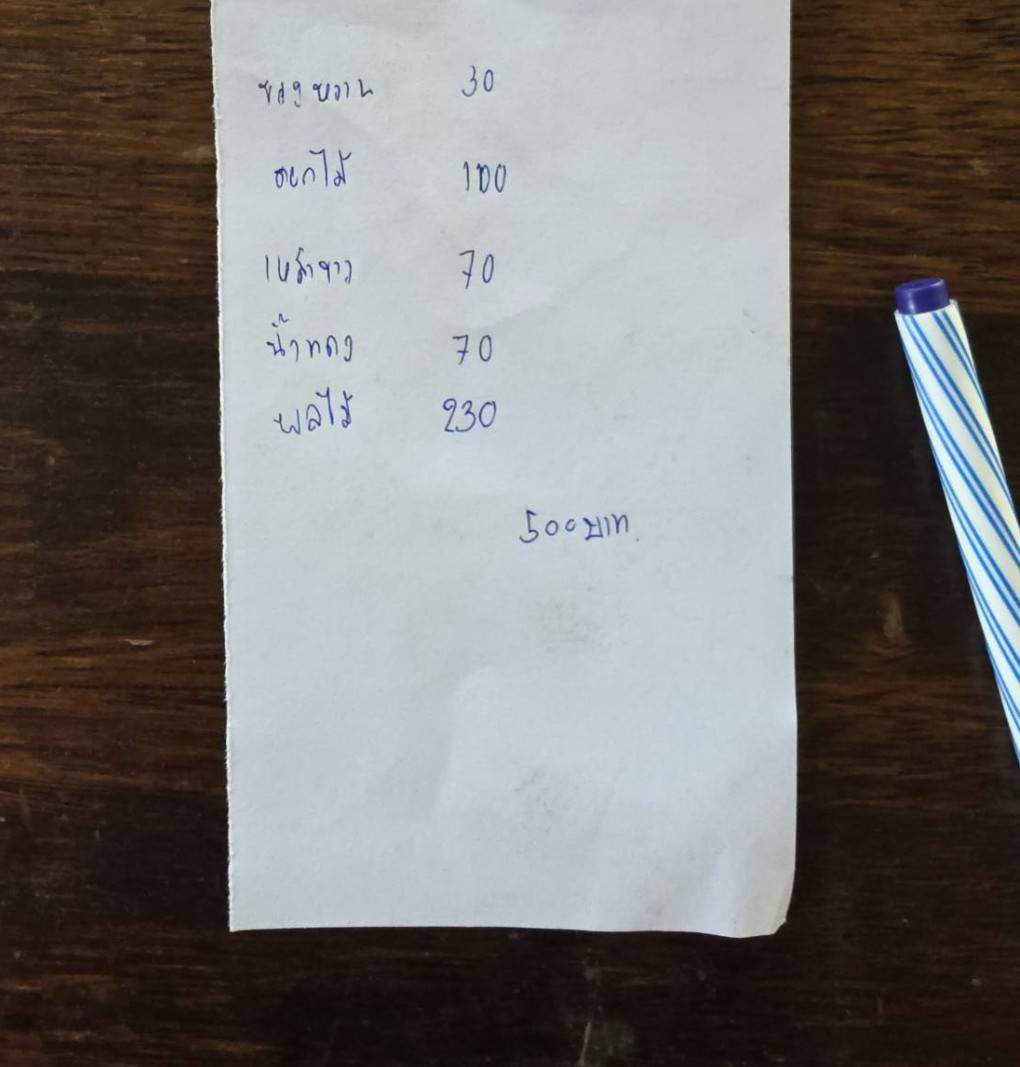 ของหวาน 30
ดอกไม้ 100
เหล้าขาว 70
น้ำแดง 70
ผลไม้ 230
500บาท.